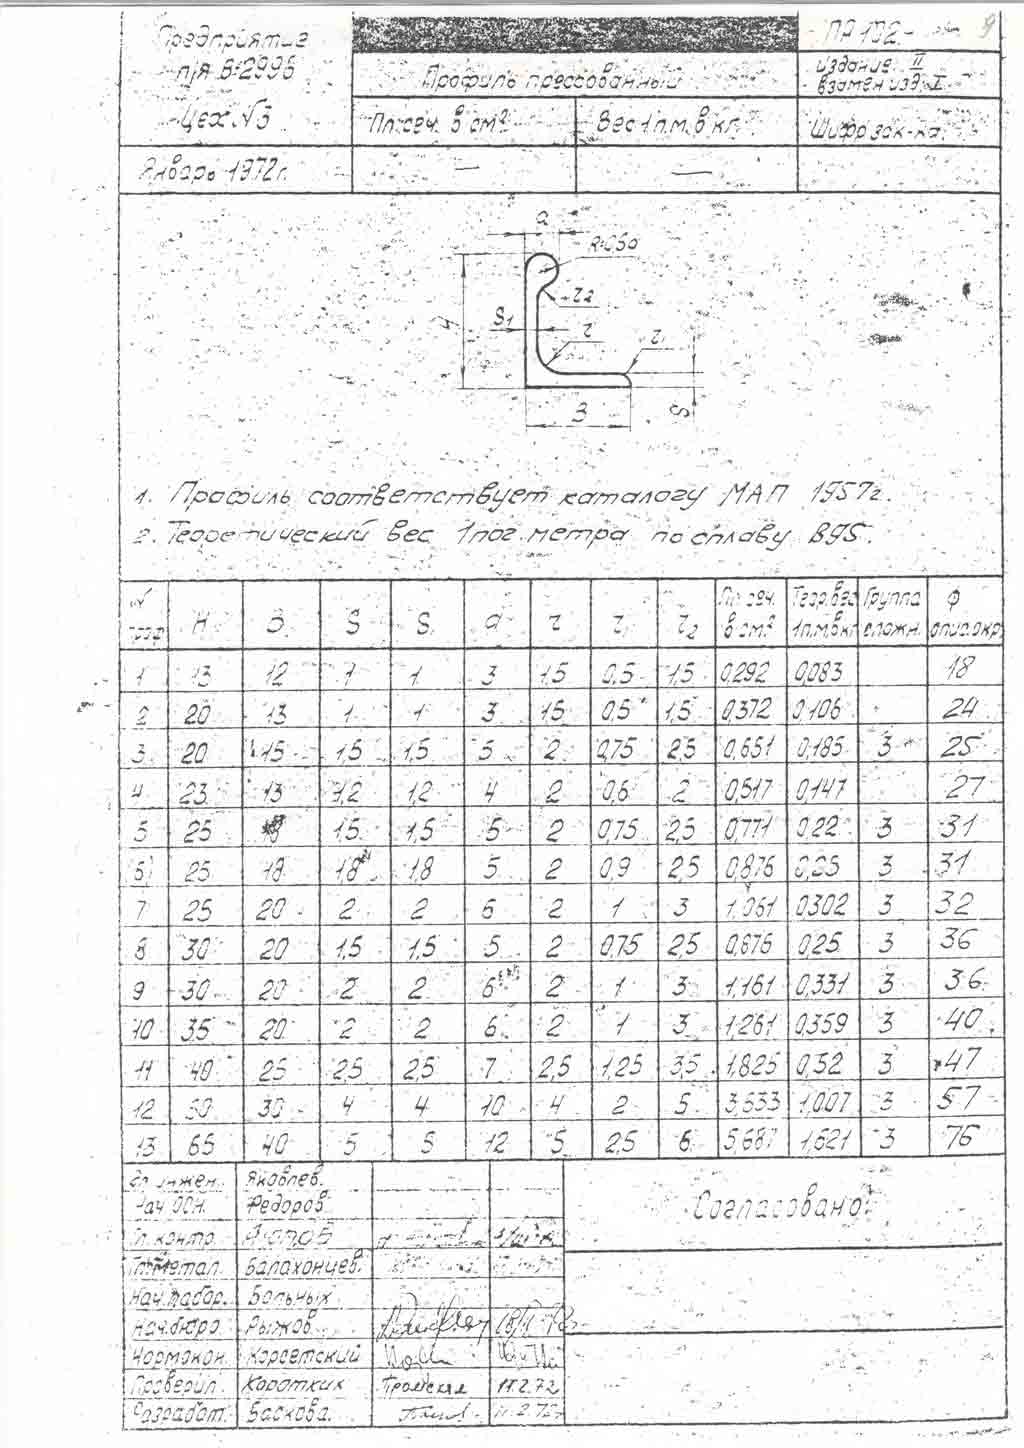 Предприятие
п/я В-2996
Цех №3
Январь 1972г.
Профиль прессованный
Пл. сеч. в см²
Вес 1п.м. в кг.
—
—
ПР 102-
издание II
взамен изд. I
Шифр зак-ка
a
R=0,5a
r2
S1
r
r1
H
B
S
1. Профиль соответствует каталогу МАП 1957г.
2. Теоретический вес 1 пог. метра по сплаву В95.
№ проф. H B S S1 a r r1 r2 Пл. сеч. в см² Теор. вес 1п.м. в кг Группа сложн. Ф опис. окр.
1 13 12 1 1 3 1,5 0,5 1,5 0,292 0,083 18
2 20 13 1 1 3 1,5 0,5 1,5 0,372 0,106 24
3 20 15 1,5 1,5 5 2 0,75 2,5 0,651 0,185 3 25
4 23 13 1,2 1,2 4 2 0,6 2 0,517 0,147 27
5 25 1,5 1,5 5 2 0,75 2,5 0,771 0,22 3 31
6 25 18 1,8 1,8 5 2 0,9 2,5 0,876 0,25 3 31
7 25 20 2 2 6 2 1 3 1,061 0,302 3 32
8 30 20 1,5 1,5 5 2 0,75 2,5 0,876 0,25 3 36
9 30 20 2 2 6 2 1 3 1,161 0,331 3 36
10 35 20 2 2 6 2 1 3 1,261 0,359 3 40
11 40 25 2,5 2,5 7 2,5 1,25 3,5 1,825 0,52 3 47
12 50 30 4 4 10 4 2 5 3,533 1,007 3 57
13 65 40 5 5 12 5 2,5 6 5,687 1,621 3 76
Гл. инжен. Яковлев.
Нач. ООН. Федоров
Гл. контр.
Гл. метал. Балахонцев.
Нач. лабор. Больных
Нач. бюро Рыжов
Нормокон. Корсетский
Проверил. Коротких 11.2.72
Разработ. Баскова. 11.2.72г
Согласовано: